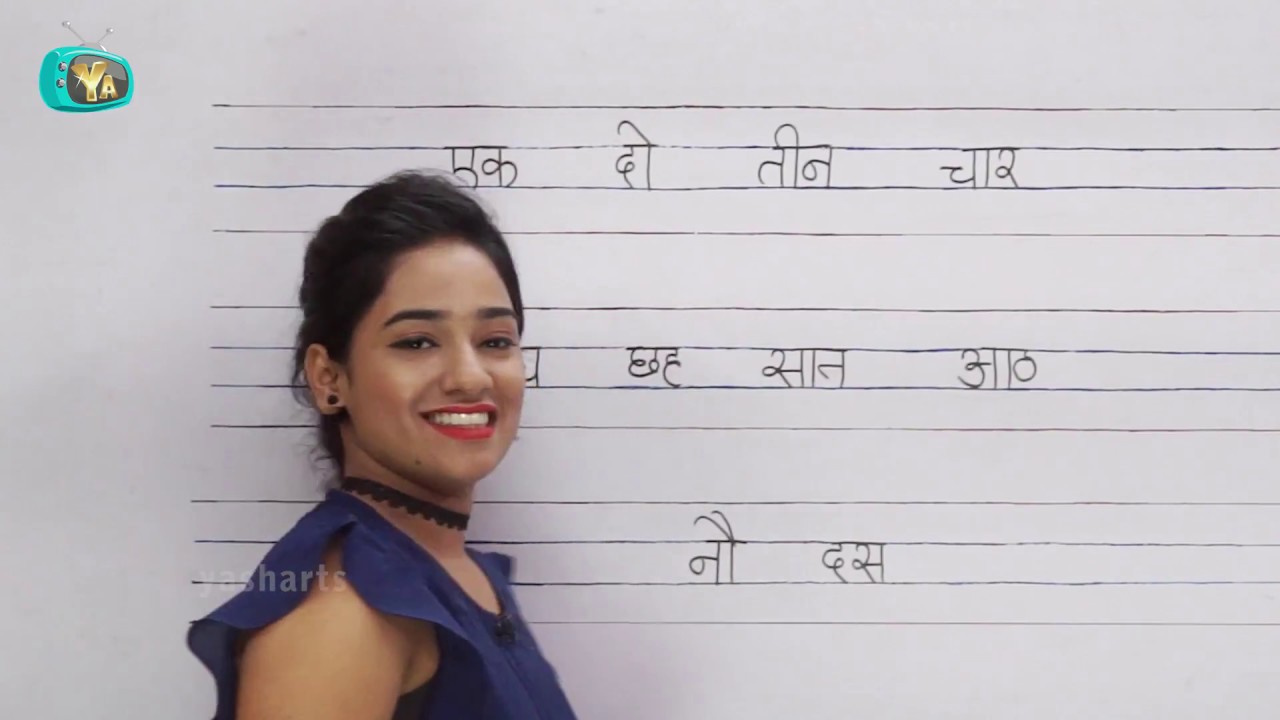 YA
एक दो तीन चार
छह सात आठ
नौ दस
yasharts